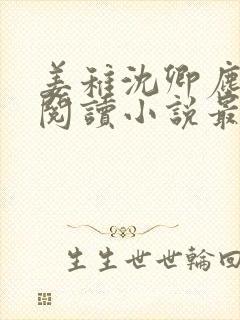 姜稚沈卿鹿
閱讀小說最
生生世世輪回